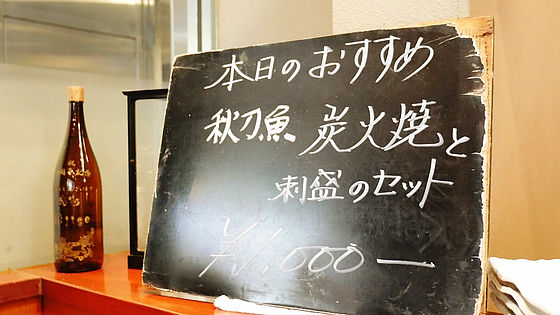 本日のおすすめ
秋刀魚 炭火焼と
刺盛のセット
¥1,000ー